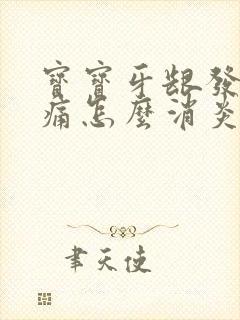 寶寶牙齦發
痛怎麼消炎
聿天使